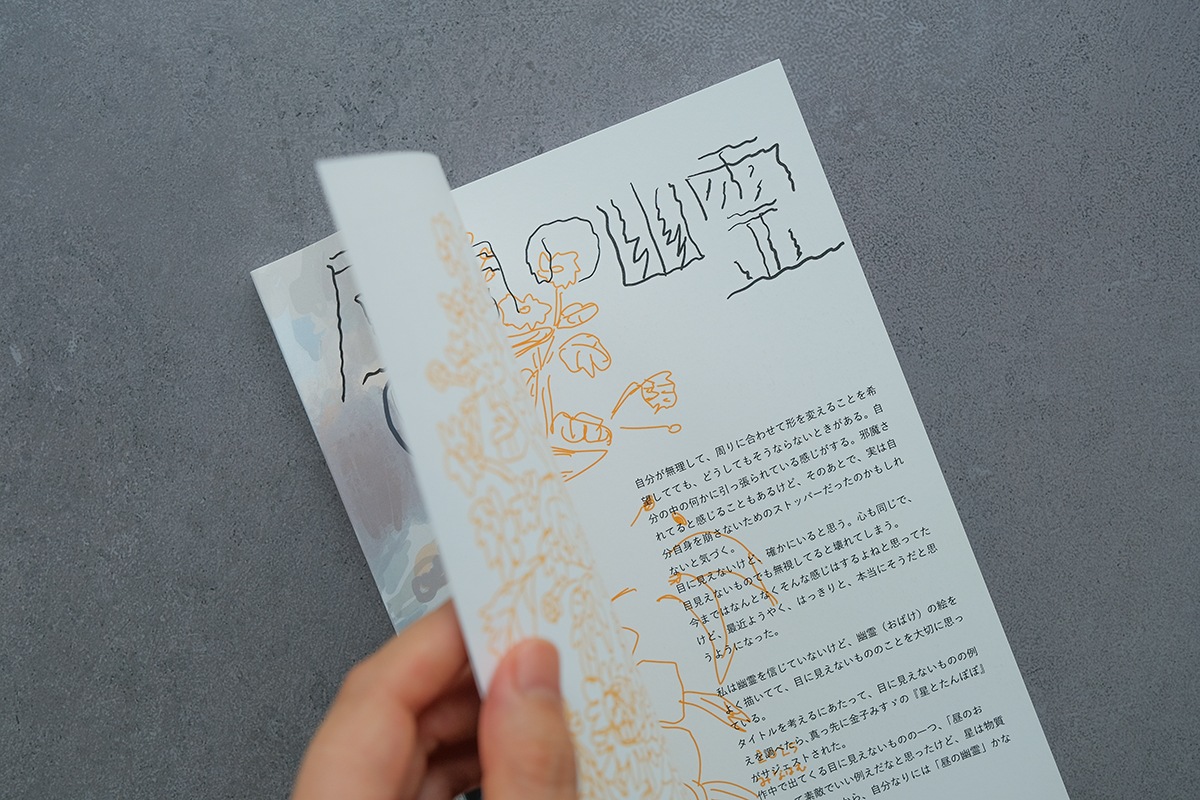 の幽霊
自分が無理して、周りに合わせて形を変えることを希
望してても、どうしてもそうならないときがある。自
分の中の何かに引っ張られている感じがする。邪魔さ
れてると感じることもあるけど、そのあとで、実は自
分自身を崩さないためのストッパーだったのかもしれ
ないと気づく。
目に見えないけど、確かにいると思う。心も同じで、
目見えないものでも無視してると壊れてしまう。
今まではなんとなくそんな感じはするよねと思ってた
けど、最近ようやく、はっきりと、本当にそうだと思
うようになった。
私は幽霊を信じていないけど、幽霊（おばけ）の絵を
よく描いてて、目に見えないもののことを大切に思っ
ている。
タイトルを考えるにあたって、目に見えないものの例
えを調べたら、真っ先に金子みすゞの『星とたんぽぽ』
がサジェストされた。
作中で出てくる目に見えないものの一つ、「昼のお
て素敵でいい例えだなと思ったけど、星は物質
から、自分なりには「昼の幽霊」かな